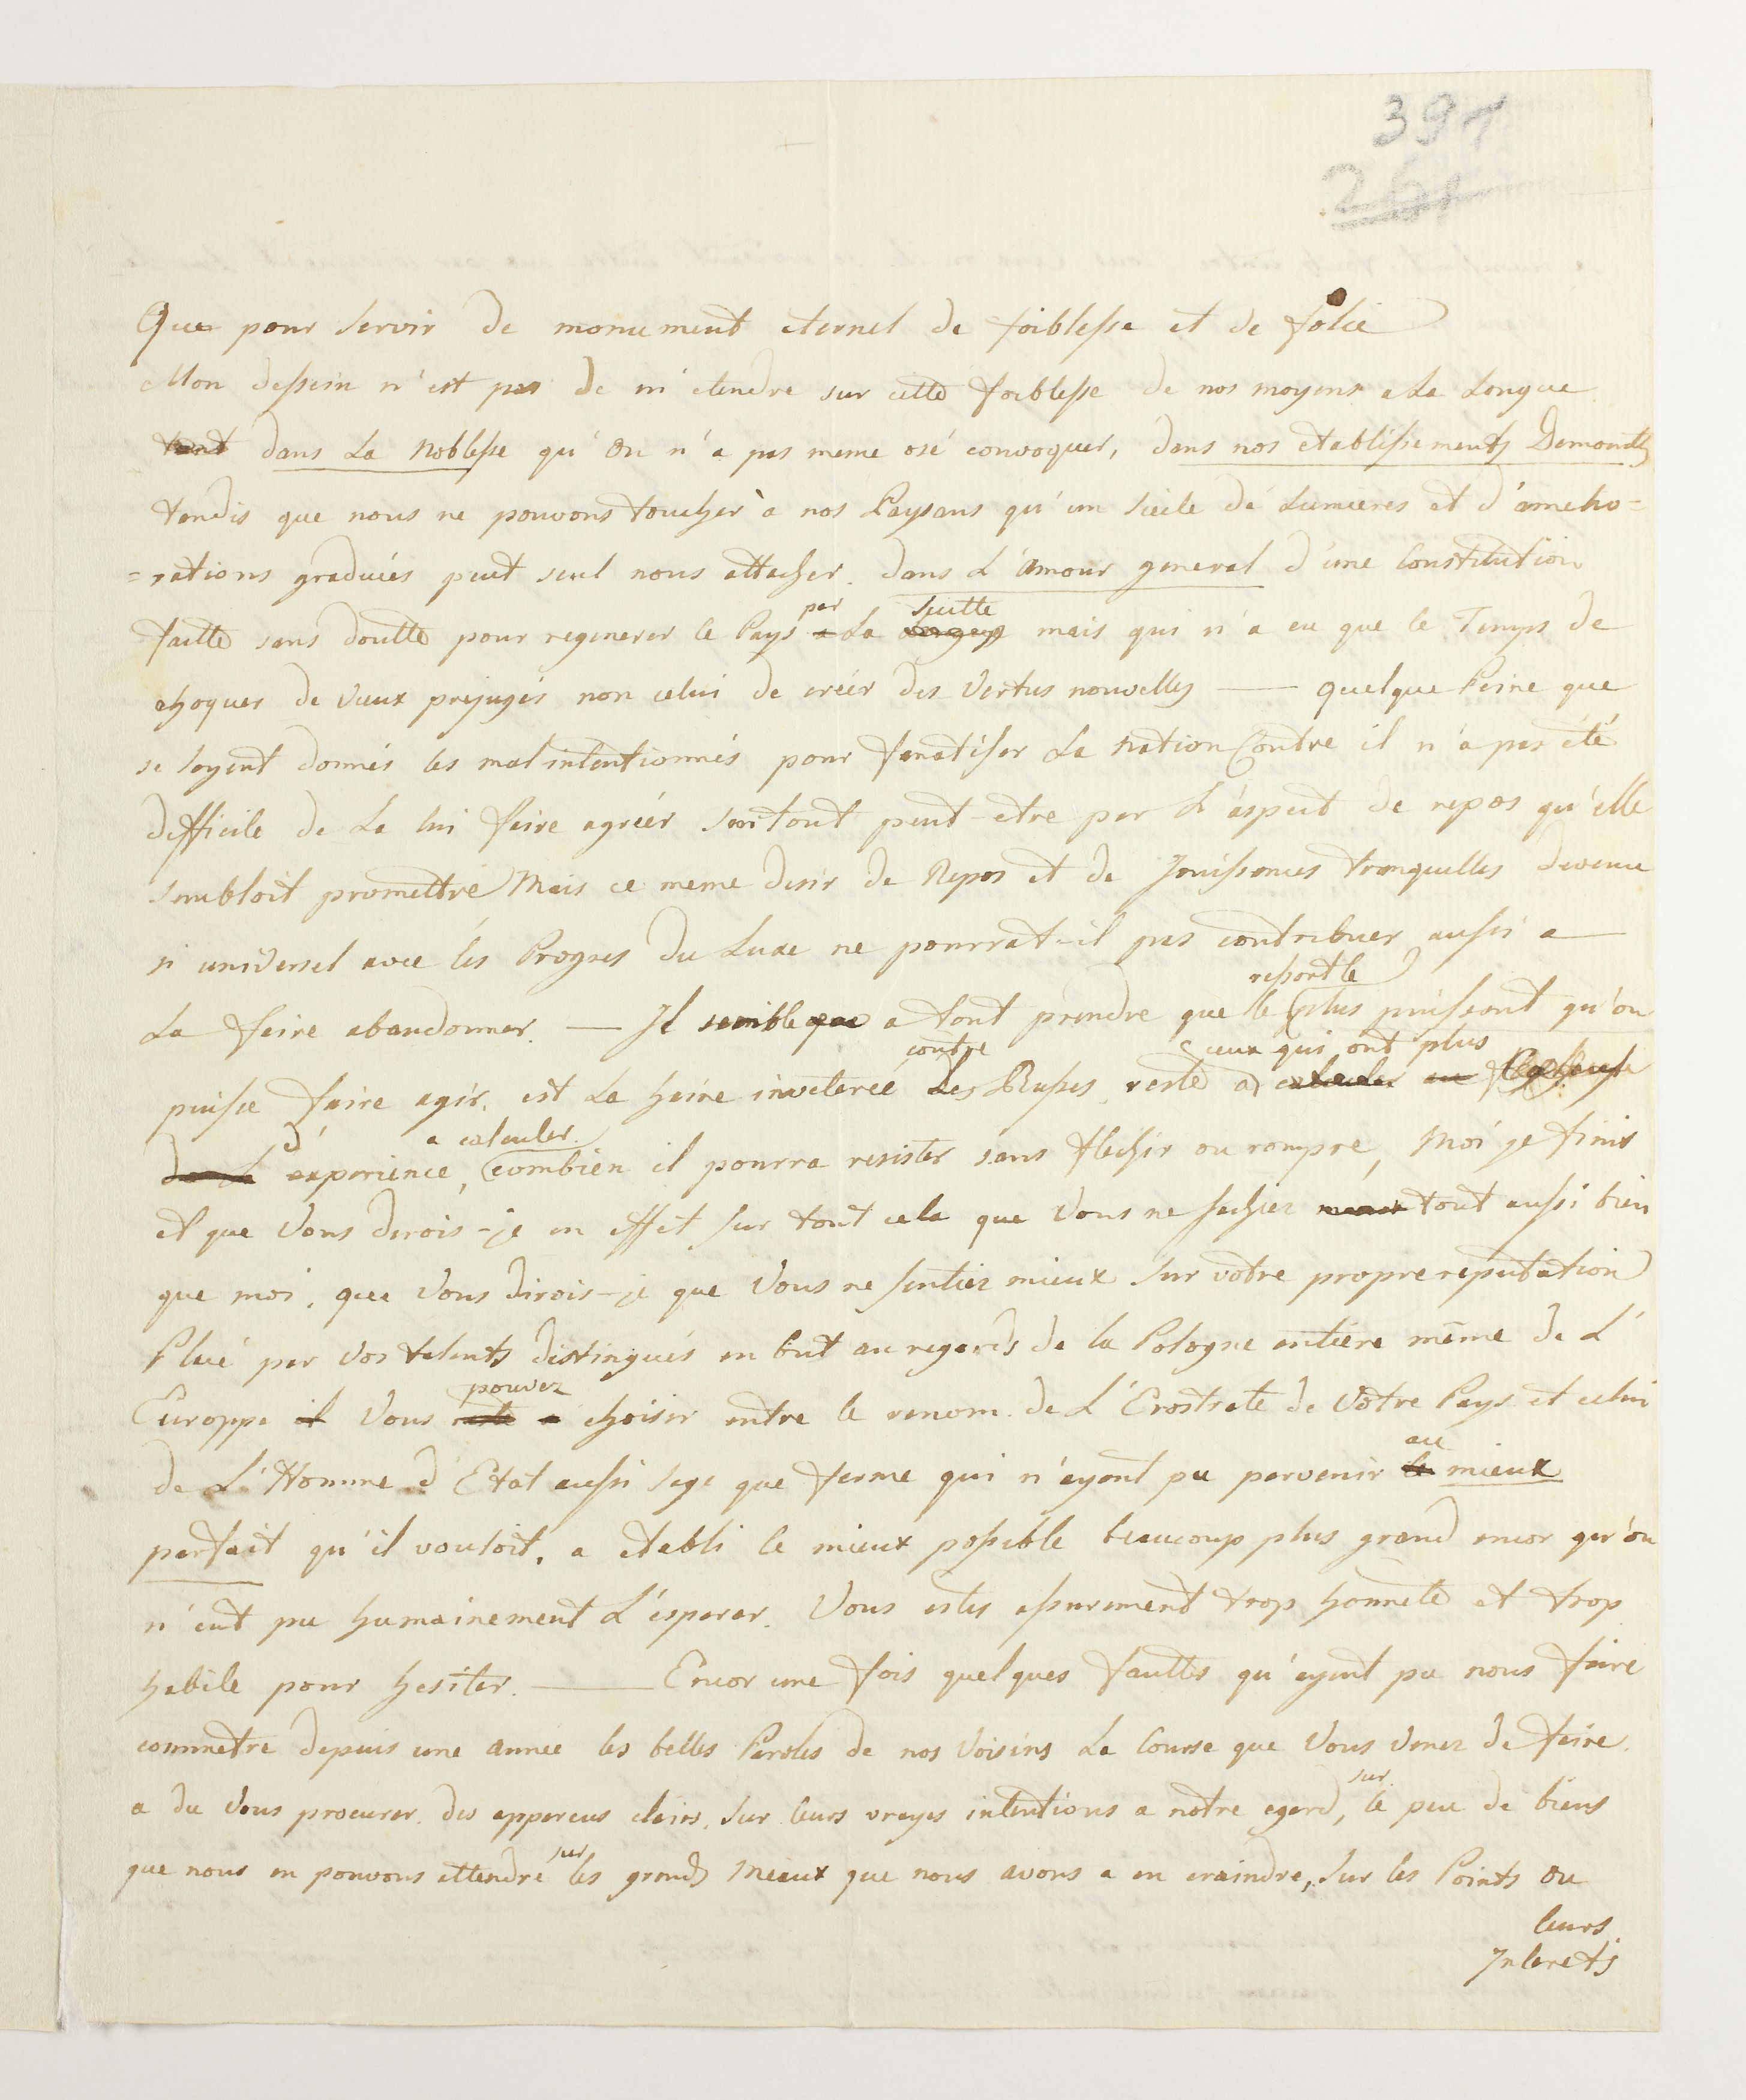 391
261
Que pour servir de monument eternel de foiblesse et de folie
Mon dessein n'est pas de m'etendre sur cette foiblesse de nos moyens a La Longue
tant dans La Noblesse qu'on n'a pas meme osé convoquer, dans nos etablissements
tandis que nous ne pouvons toucher à nos Paysans qu'un siecle de Lumieres et d'amelio=
=rations graduées peut seul nous attacher. dans L'amour general d'une Constitution
par suitte
faitte sans doutte pour regenerer le Pays a La mais qui n'a eu que le Temps de
choquer de vieux prejugés non celui de créer des Vertus nouvelles — quelque Peine que
se soyent donnés les mal intentionnés pour fanatiser La Nation Contre il n'a pas été
difficile de La lui faire agréer surtout peut-etre par L'aspect de repos qu'elle
sembloit promettre Mais ce meme desir de Repos et de Jouissances tranquilles devenu
si universel avec les Progres du Luxe ne pourrat-il pas contribuer aussi a
ressort le
La faire abandonner. — Il semble que a tout prendre que le plus puissant qu'on
contre ceux qui ont plus
puisse faire agir, est La haine inveterée Les Russes, reste a calculer au
d' a calculer.
experience, combien il pourra resister sans flechir ou rompre, Moi je finis
et que Vous dirois-je en effet sur tout cela que Vous ne sachiez tout aussi bien
que moi, que Vous dirois-je que Vous ne sentiez mieux sur votre propre reputation
Placé par vos talents distingués en but au regards de la Pologne entiere même de L'
pouvez
Europpe il Vous reste a choisir entre le renom de L'Erostrate de Votre Pays et celui
au
de L'Homme d'Etat aussi sage que ferme qui n'ayant pu parvenir le mieux
parfait qu'il vouloit, a etabli le mieux possible beaucoup plus grand encor qu'on
n'eut pu humainement L'esperer. Vous estes assurement trop honnete et trop
habile pour hesiter. — Encor une fois quelques fauttes qu'ayent pu nous faire
commetre depuis une année les belles Paroles de nos Voisins La Course que Vous venez de faire
sur
a du Vous procurer des apperçus clairs, sur leurs vrayes intentions a notre egard, le peu de biens
sur
que nous en pouvons attendre les grands Meaux que nous avons a en craindre, sur les Points ou
leurs
Interets